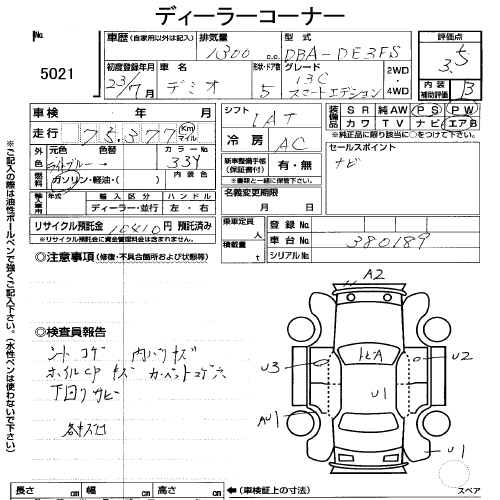 ディーラーコーナー
No.
5021
車歴 (自家用以外は記入)
排気量
型式
評価点
1300 c.c.
DBA-DE3FS
3.5
初度登録年月
車名
形状・ドア数
グレード
2WD・4WD
内装補助評価
23/7月
デミオ
5
13C スマートエディション
B
車検 年 月
シフト
1AT
装備品
SR 純AW PS PW
カワ TV ナビ エアB
※純正品に限り該当に○をつけて下さい。
走行 75,377 Km マイル
冷房
AC
セールスポイント
ナビ
外色
元色
色替
カラーNo.
ライトブルー
334
燃料
ガソリン・軽油・( )
内装色
新車整備手帳
(保証書付)
有・無
※書類と一緒に保管して下さい。
輸入車用
年式
輸入区分
ハンドル
ディーラー・並行
左・右
名義変更期限
月 日
リサイクル預託金 10410円 預託済み
※リサイクル預託金に資金管理料金は含まれません。
乗車定員 人
積載量 t
登録No.
車台No. 380189
シリアルNo.
※ご記入の際は油性ボールペンで強くご記入下さい。(水性ペンは使わないで下さい)
◎注意事項 (修復・不具合箇所および状態等)
◎検査員報告
シートコゲ 内バリキズ
ホイルCPキズ カーペットコゲ穴
下回りサビ
A2
U3
ヒA
U2
U1
AU1
U1
スペア
長さ cm 幅 cm 高さ cm ←(車検証上の寸法)